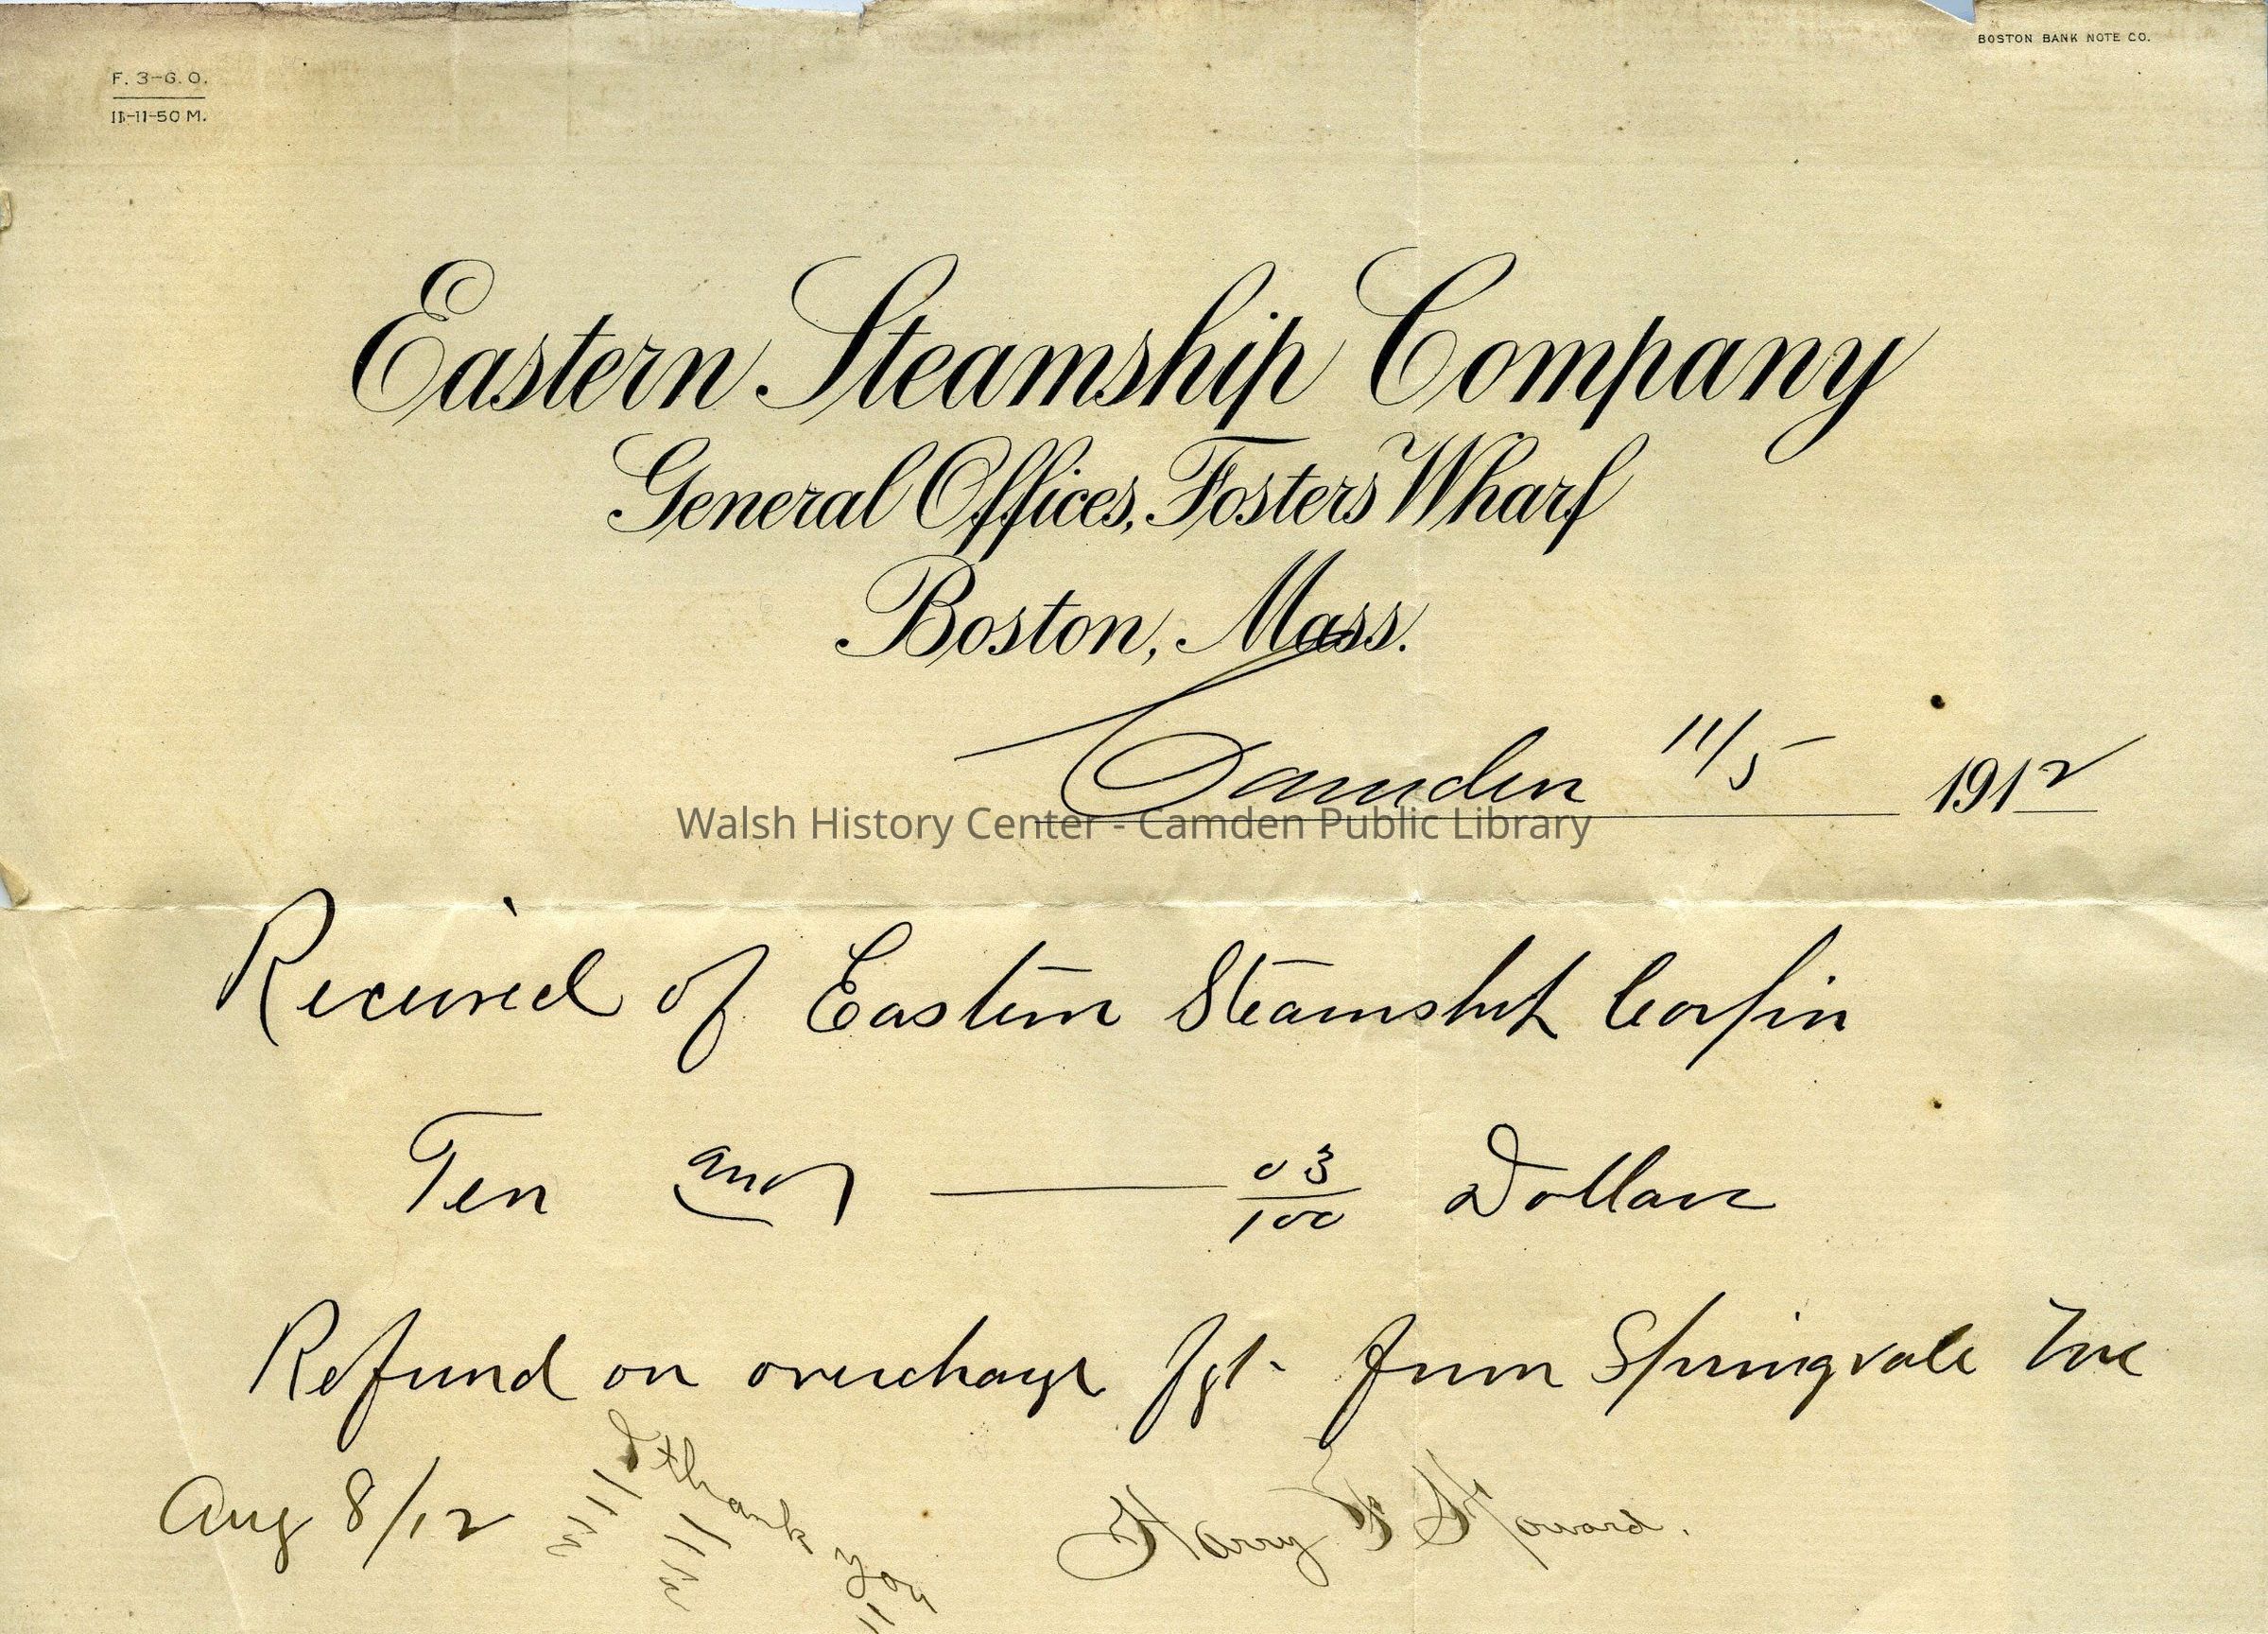 F. 3-G. O.
11-11-50 M.
BOSTON BANK NOTE CO.
Eastern Steamship Company
General Offices, Fosters Wharf
Boston, Mass.
Camden 11/5 1912
Walsh History Center - Camden Public Library
Received of Eastern Steamship Corp'n
Ten and 03/100 Dollars
Refund on overcharge fgt. from Springvale Me
Aug 8/12
I thank you
Harry F Howard.